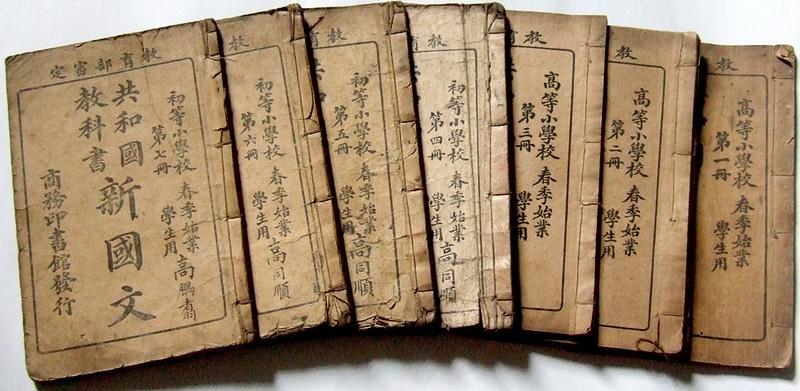 教育部審定
初等小學校 春季始業 高鵬
第七冊 學生用
共和國
教科書
新國文
商務印書館發行
教
初等小學校 春季始業 高同順
第六冊 學生用
教育
初等小學校 春季始業 高同順
第五冊 學生用
共和
教育
初等小學校 春季始業 高同順
第四冊 學生用
教育
高等小學校 春季始業
第三冊 學生用
教
高等小學校 春季始業
第二冊 學生用
教
高等小學校 春季始業
第一冊 學生用